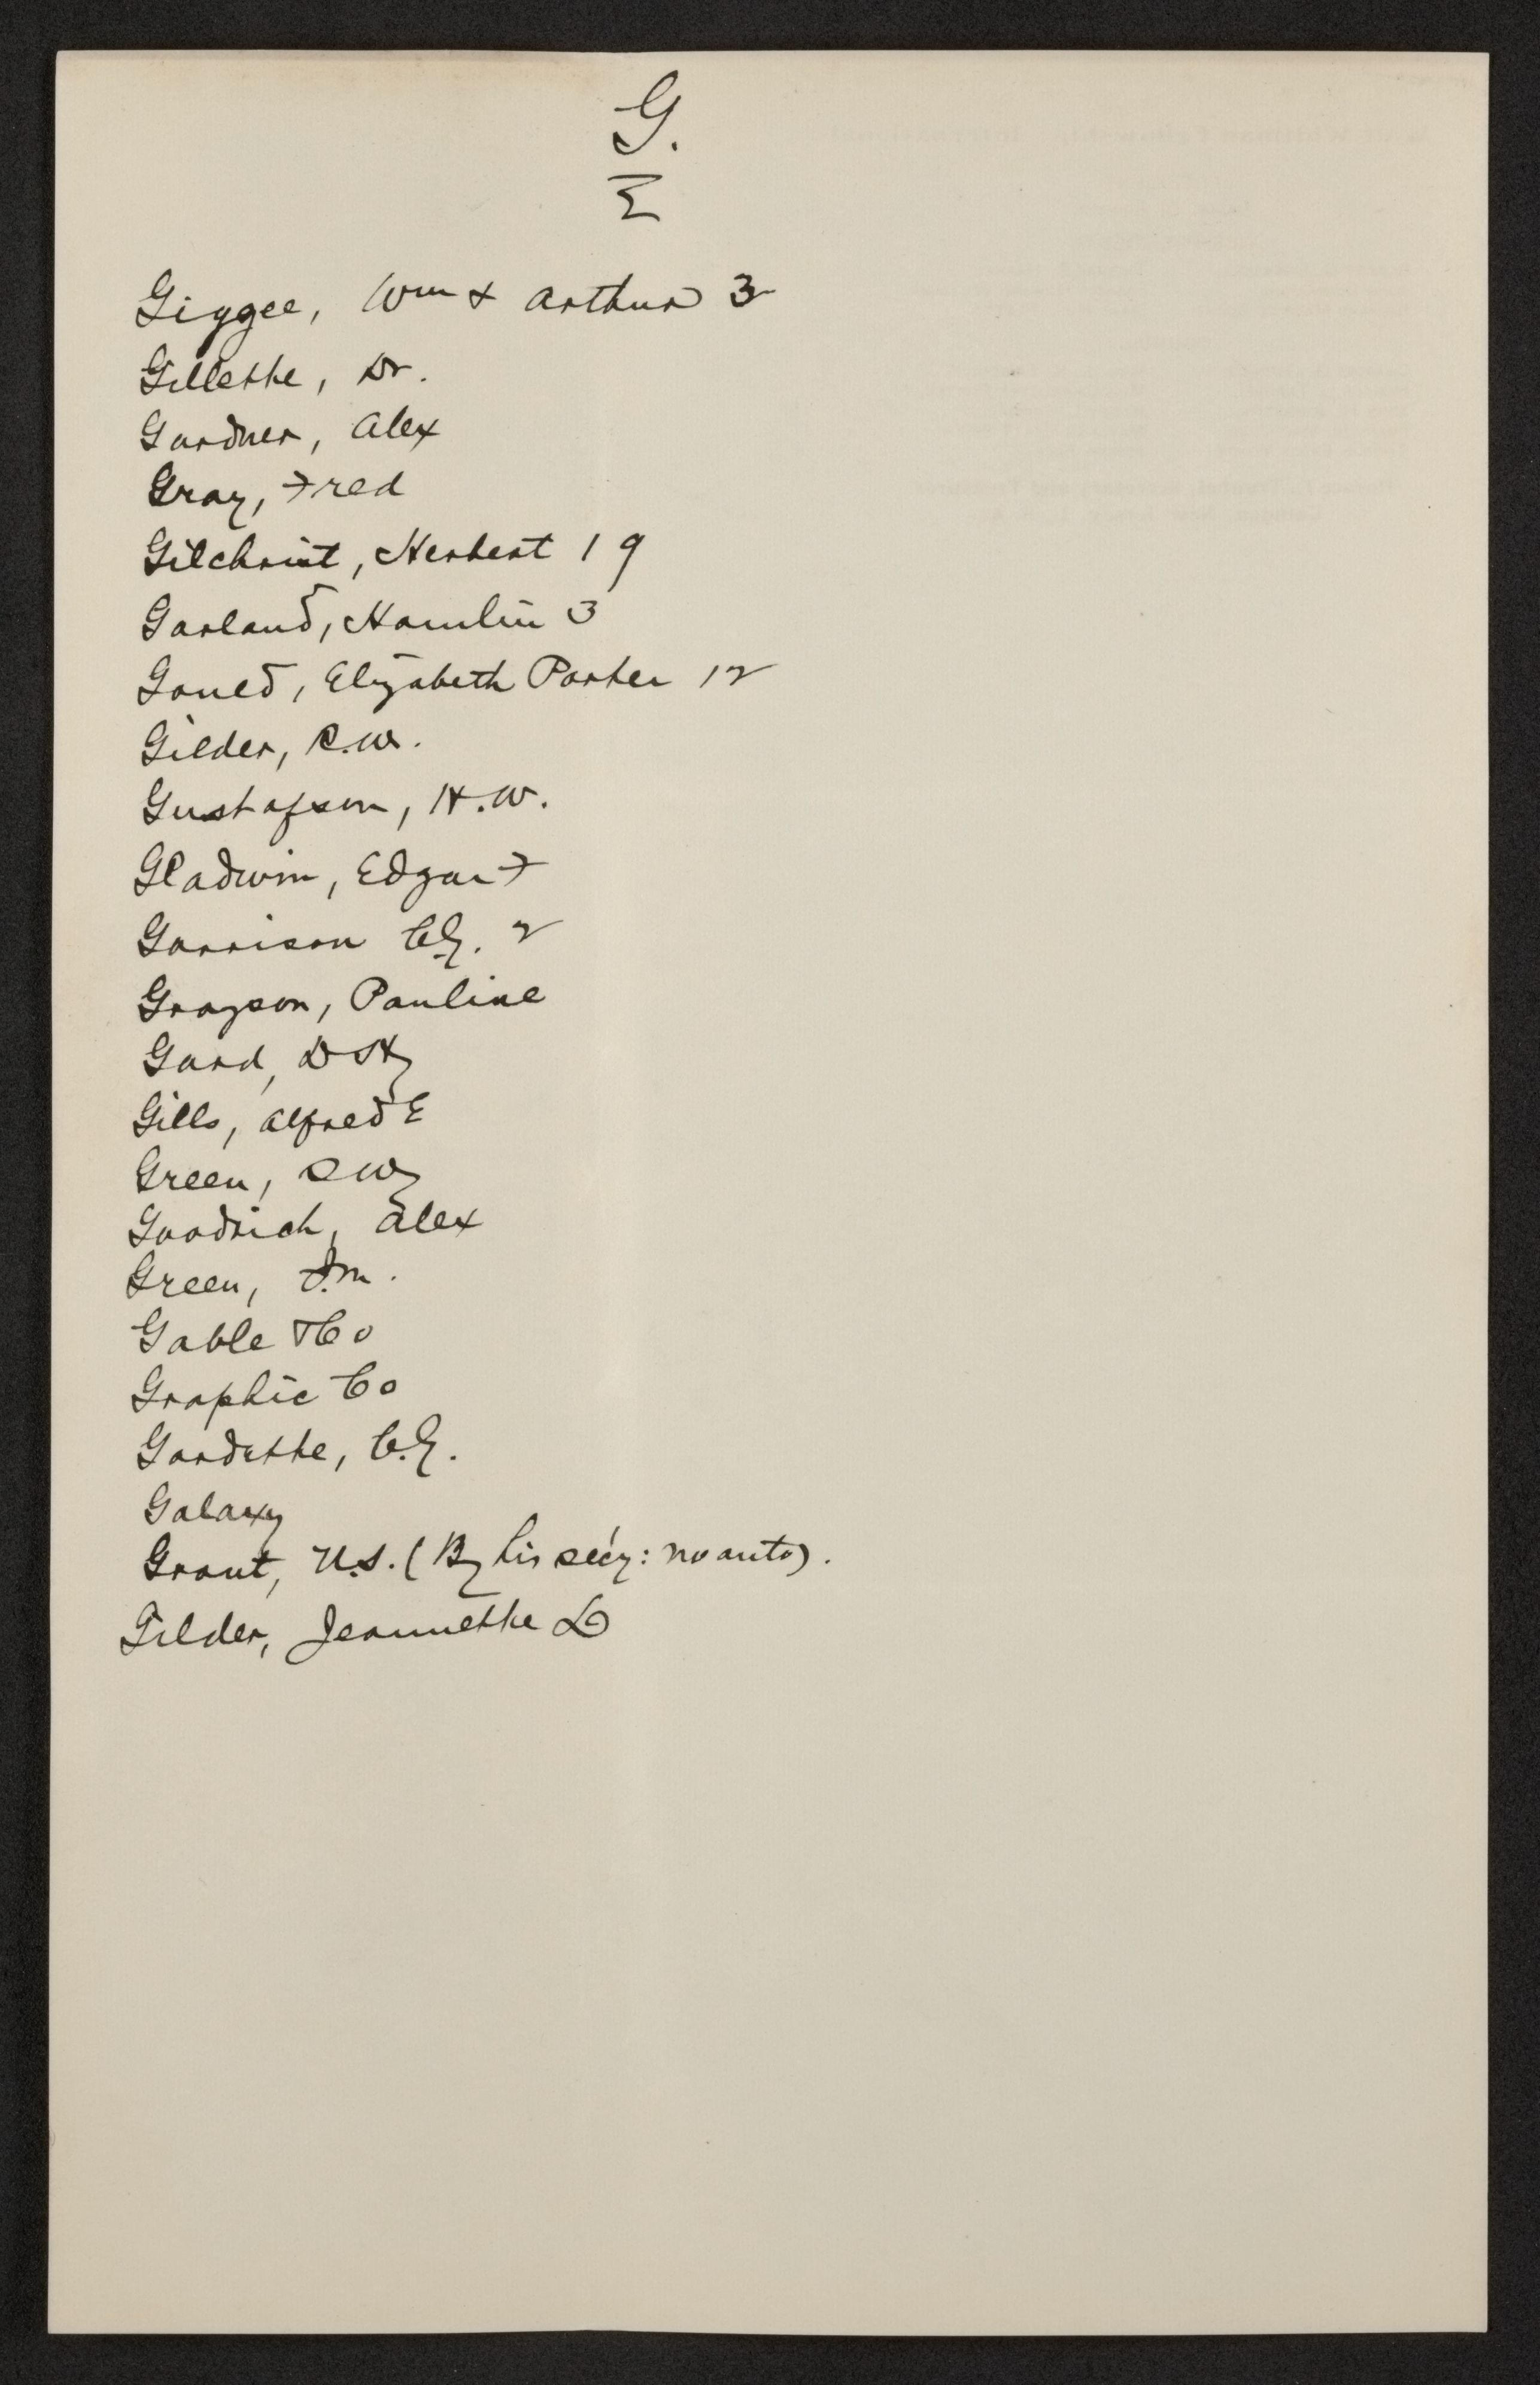 G.
Giggee, Wm & Arthur 3
Gillette, Dr.
Gardner, Alex
Gray, Fred
Gilchrist, Herbert 19
Garland, Hamlin 3
Gould, Elizabeth Porter 12
Gilder, R.W.
Gustafson, H.W.
Gladwin, Edgar F
Garrison C.G. 2
Grayson, Pauline
Gard,
Gills, Alfred E
Green, SW
Goodrich, Alex
Green, J.M.
Gable & Co
Graphic Co
Gardette, C.G.
Galaxy
Grant, U.S. (By his sec'y: no auto).
Gilder, Jeannette L